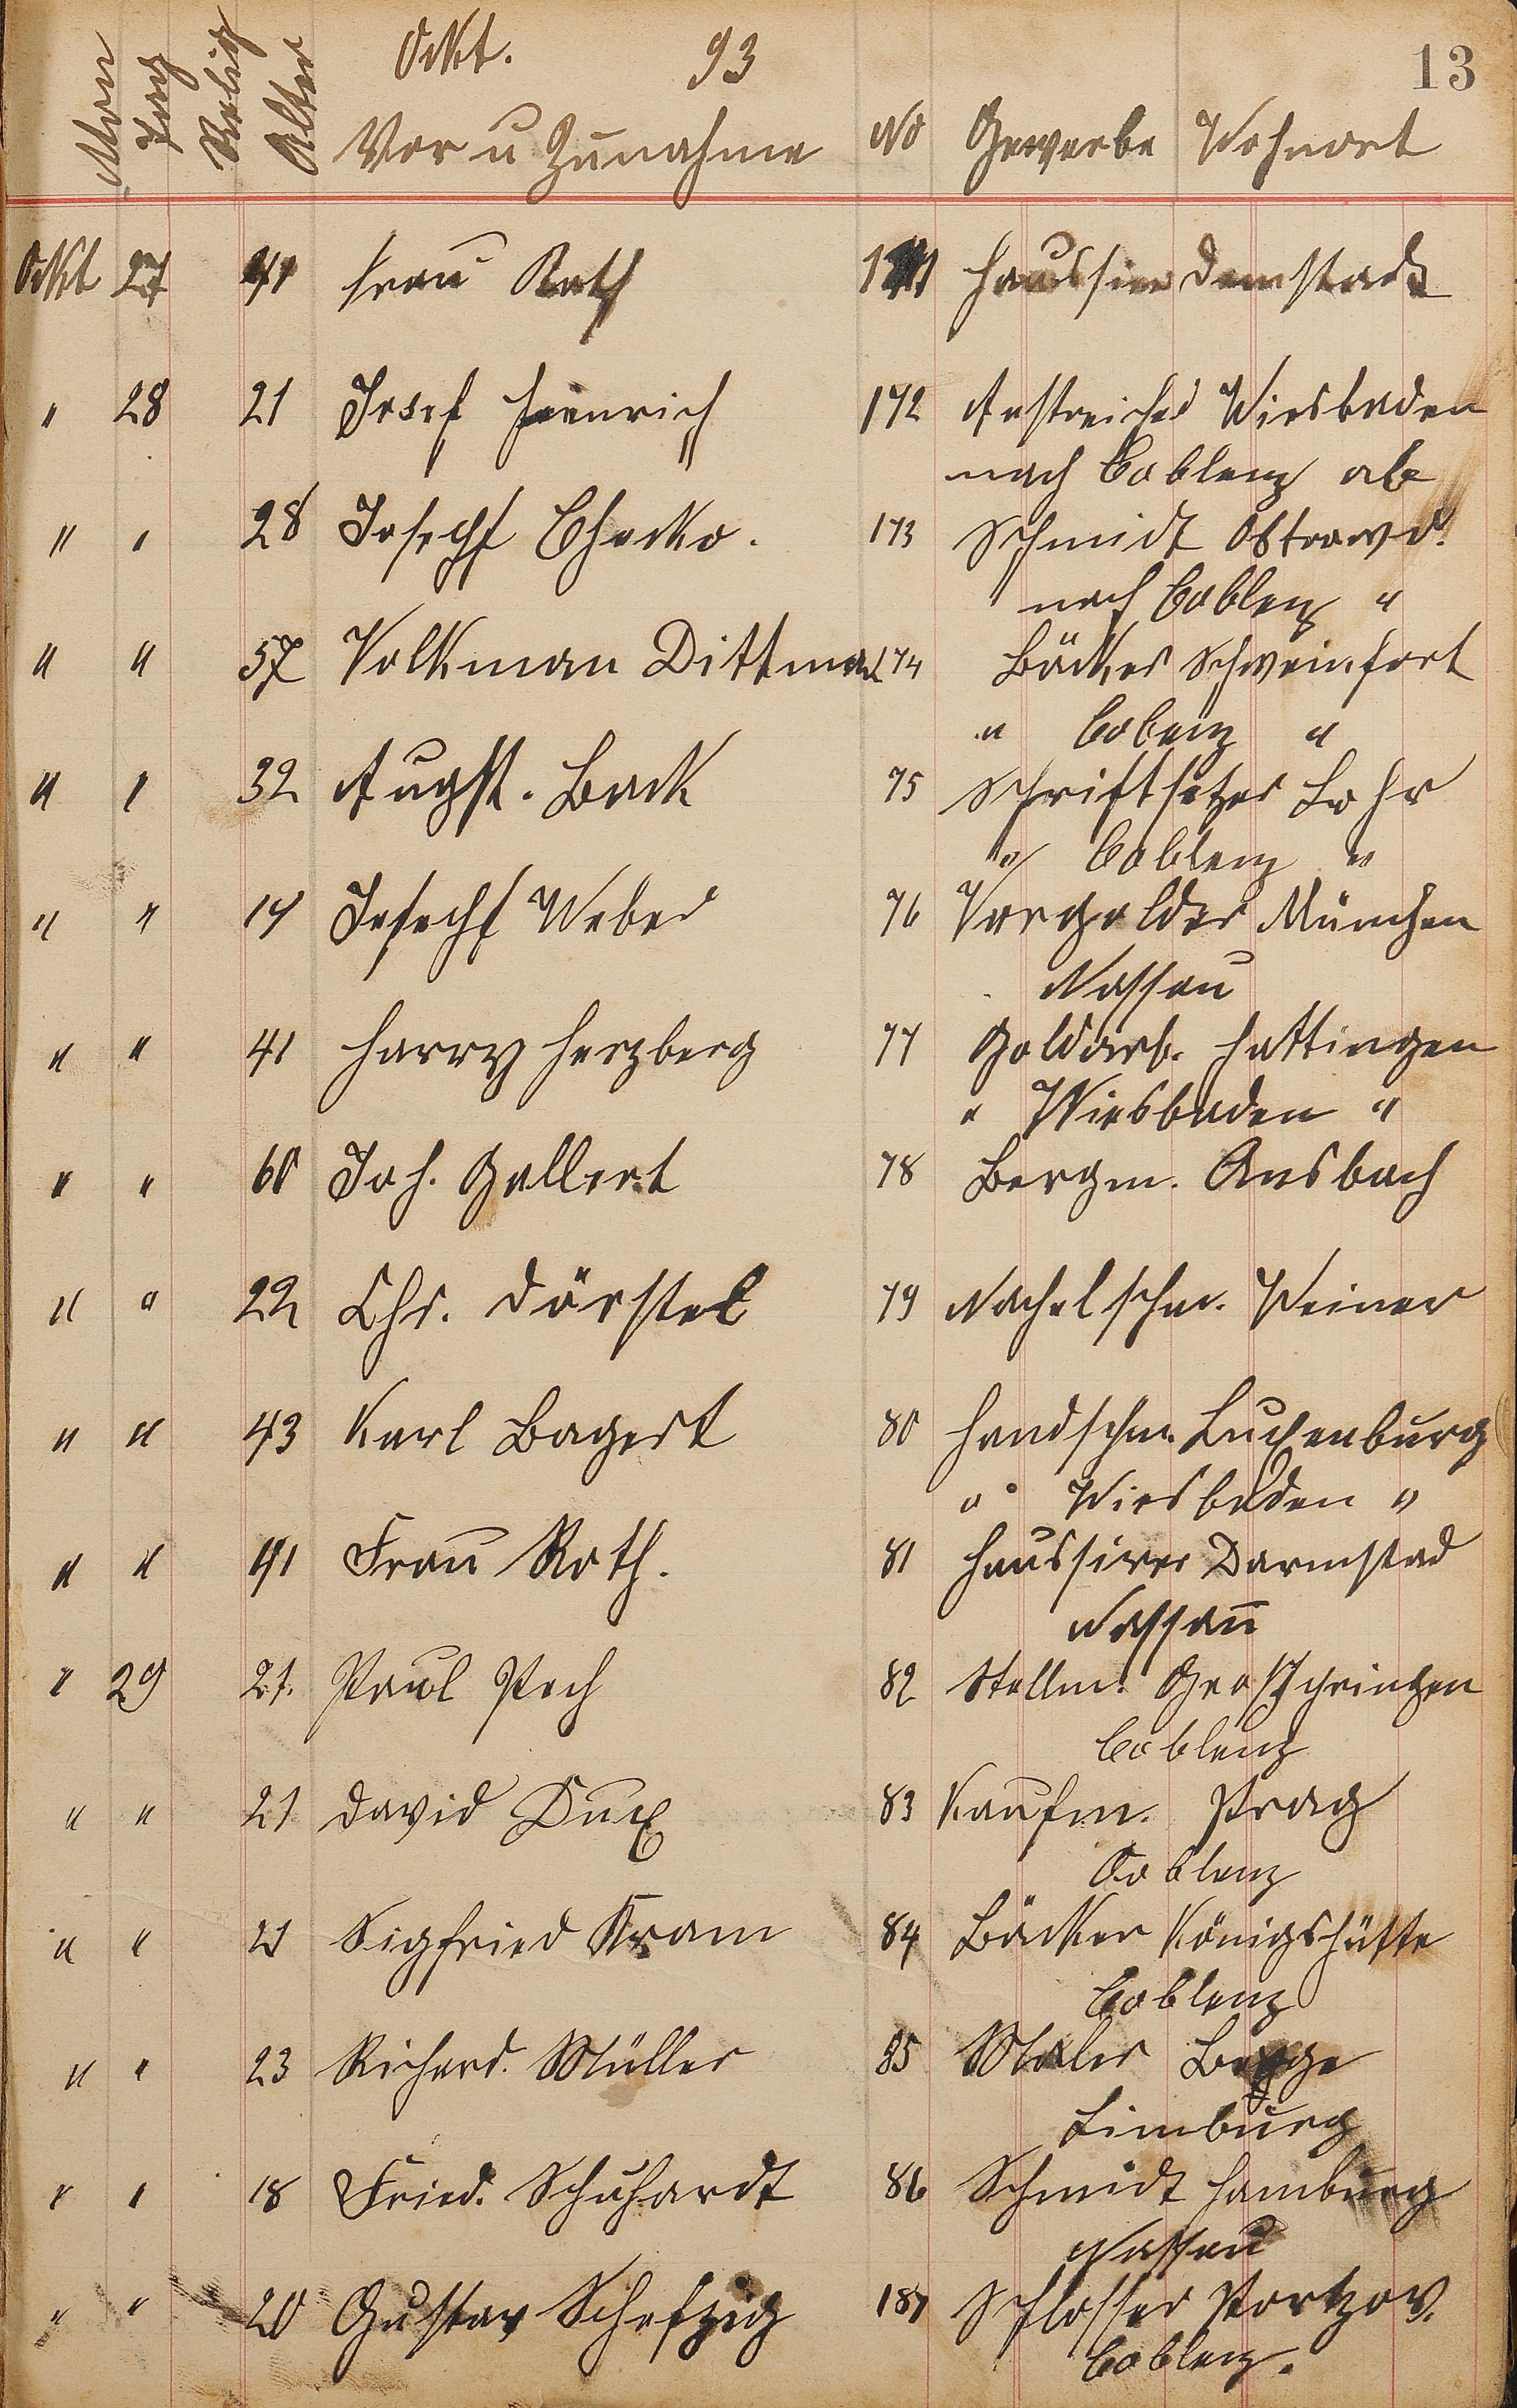 Okt. 93 13
Mon Tag Relig Alter Vor u Zunahme No Gewerbe Wohnort
Okt 27 41 Frau Roth Haussirer
" 28 21 Josef Heinrich 172 Anstreicher Wiesbaden
nach Coblenz ab
" " 28 Joseph 173 Schmidt
nach Coblenz "
" " 57 Volkman Dittmar 174 Bäcker Schweinfort
" Cobenz "
" " 32 Augst. Back 75 Schriftsetzer Lohr
" Coblenz "
" " 19 Joseph Weber 76 Vergolder München
Nassau
" " 41 Harry Herzberg 77 Goldarb. Hattingen
" Wiesbaden "
" " 60 Joh. Gellert 78 Bergm. Ansbach
" " 22 Chr. Dörstel 79 Nachelschm. Weimar
" " 43 Karl Bagert 80 Handschm. Luxenburg
" Wiesbaden "
" " 41 Frau Roth. 81 Haussirer Darmstad
Nassau
" 29 21. Paul Pech 82 Stellm.
Coblenz
" " 21 David Dux 83 Kaufm. Prag
Coblenz
" " 21 Sigfried Kram 84 Bäcker Königshütte
Coblenz
" " 23 Richard. Müller 85 Maler
Limburg
" " 18 Fried. Schuhardt 86 Schmidt Hamburg
Nassau
" " 20 Gustav Schefzig 187 Schlosser
Coblenz.